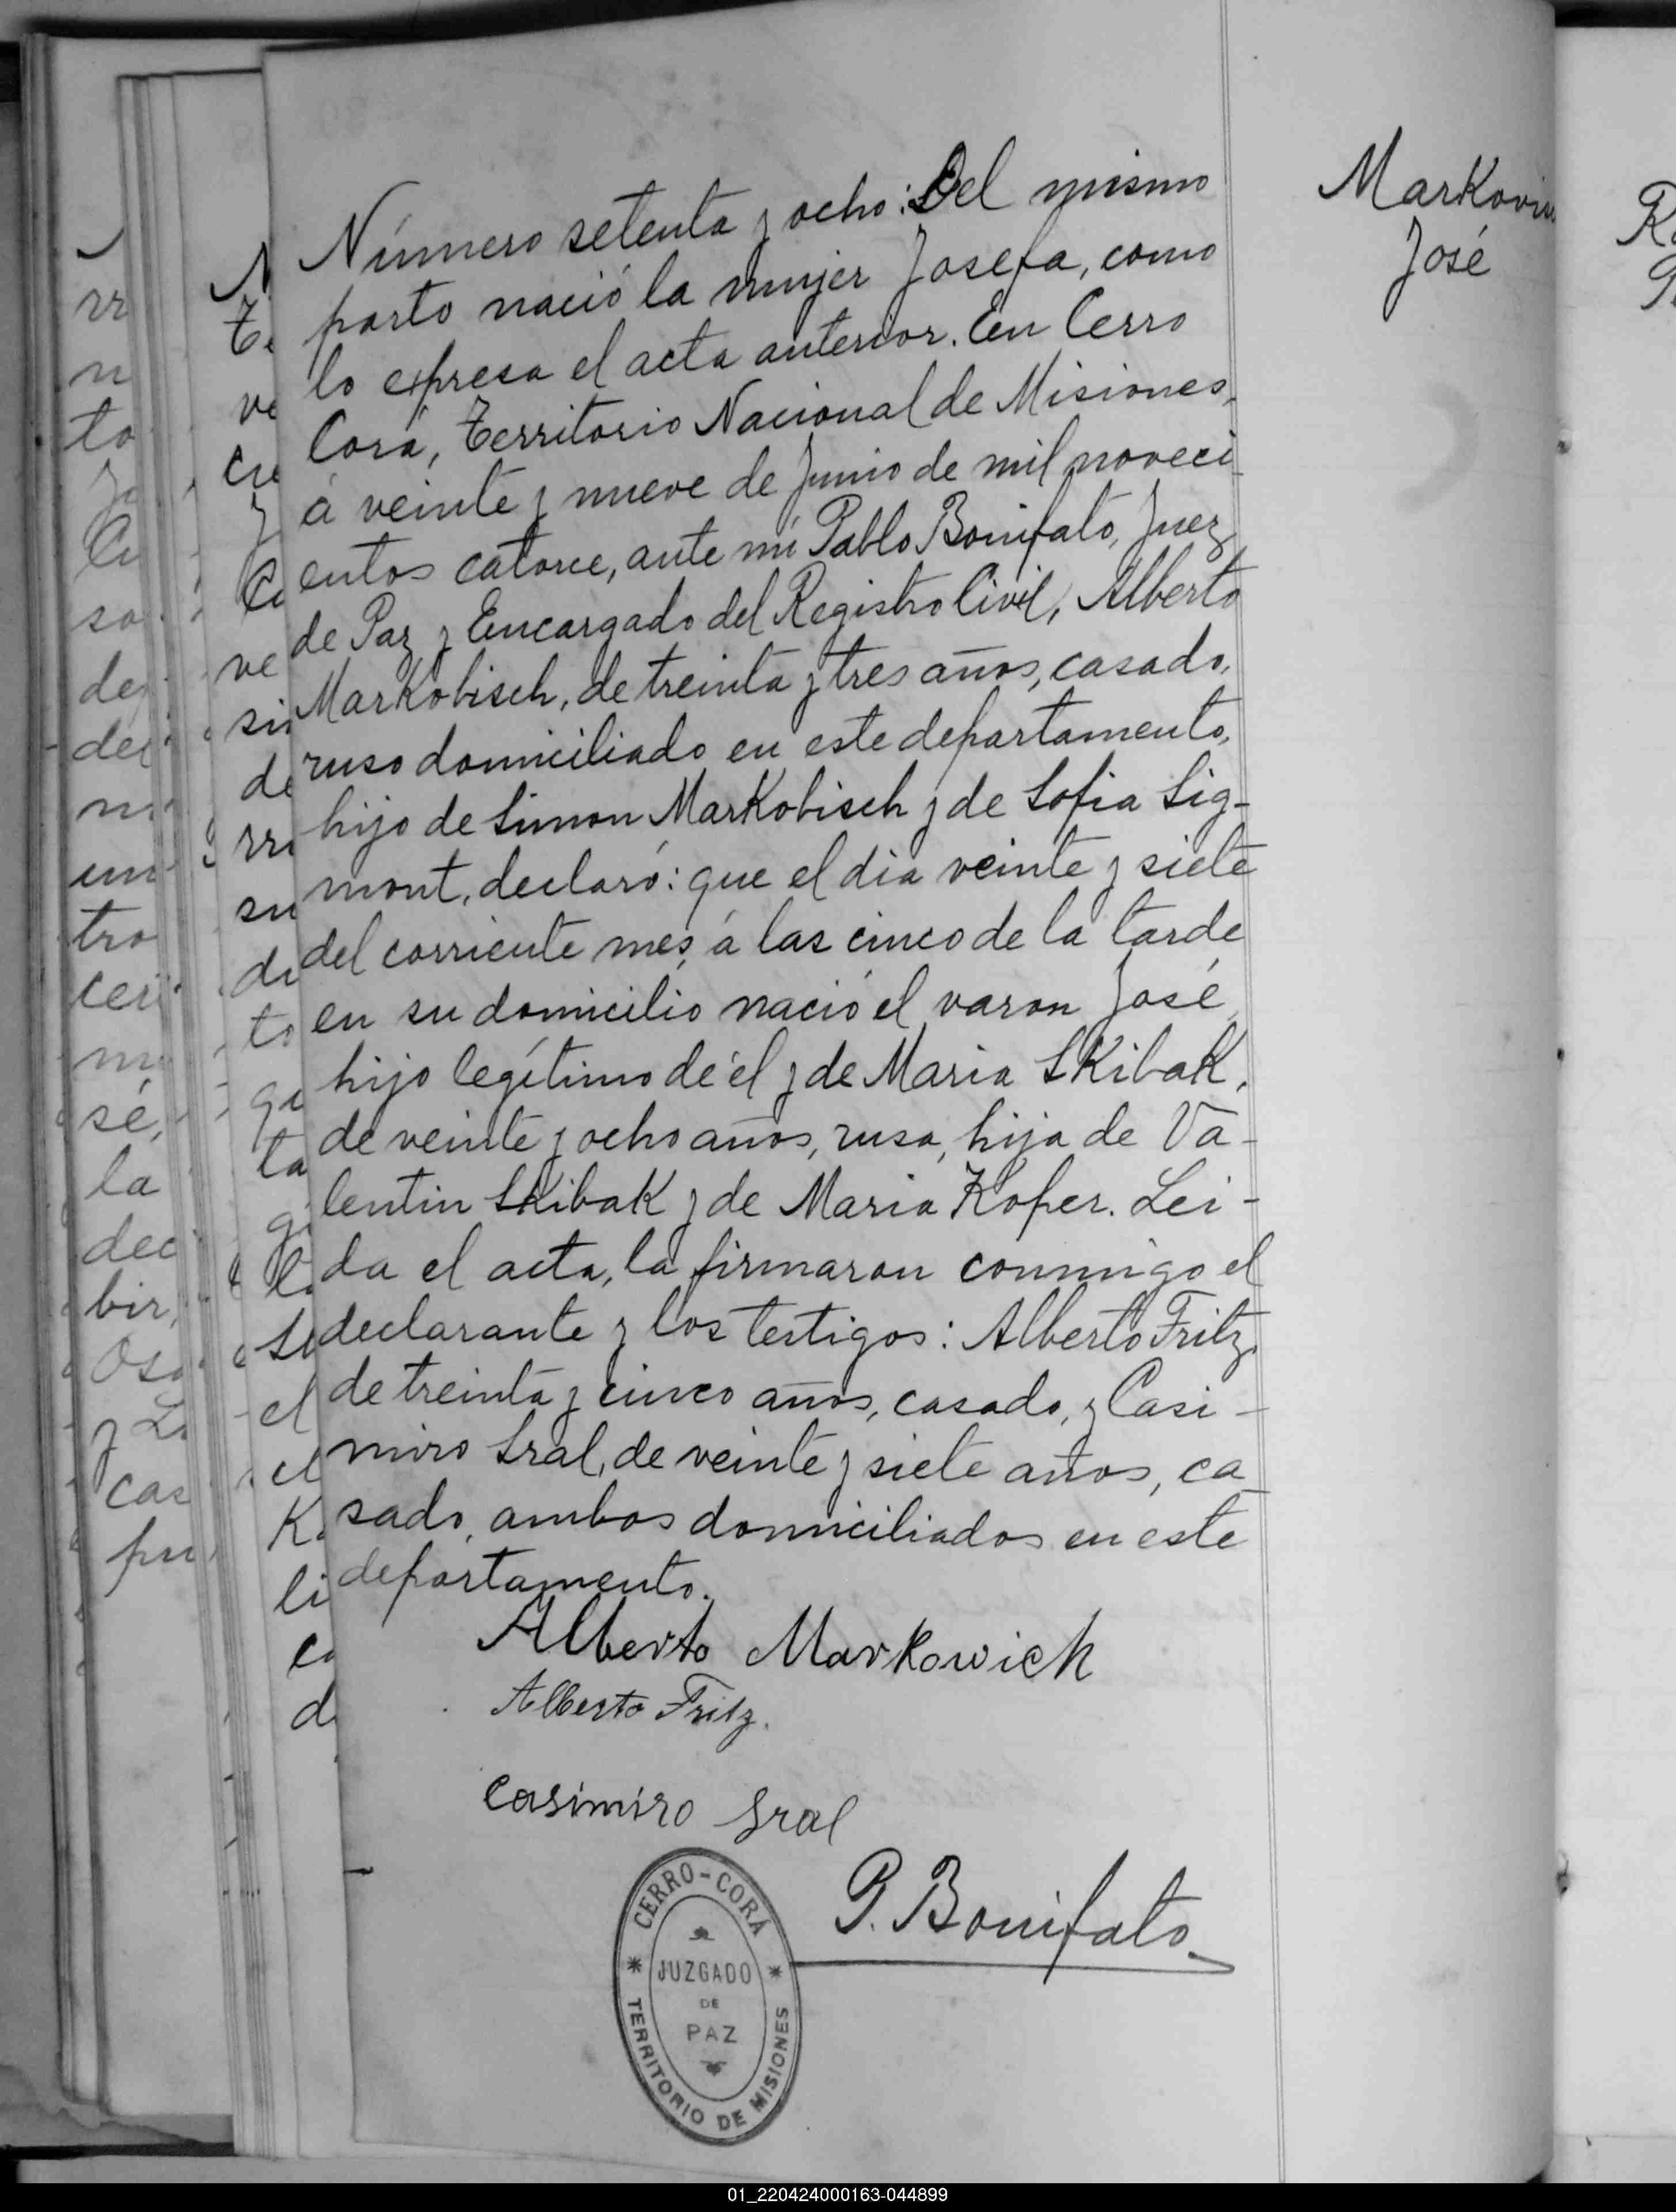 Número setenta y ocho: Del mismo
parto nació la mujer Josefa, como
lo expresa el acta anterior. En Cerro
Corá, Territorio Nacional de Misiones,
á veinte y nueve de Junio de mil noveci-
entos catorce, ante mí Pablo Bonifato, Juez
de Paz y Encargado del Registro Civil, Alberto
Markobisch, de treinta y tres años, casado,
ruso domiciliado en este departamento,
hijo de Simon Markobisch y de Sofia Sig-
mont, declaró: que el dia veinte y siete
del corriente mes, á las cinco de la tarde
en su domicilio nació el varon José,
hijo legítimo de él y de Maria Skibak,
de veinte y ocho años, rusa, hija de Va-
lentin Skibak y de Maria Koper. Lei-
da el acta, la firmaron conmigo el
declarante y los testigos: Alberto Fritz,
de treinta y cinco años, casado, y Casi-
miro Sral, de veinte y siete años, ca-
sado, ambos domiciliados en este
departamento.
Alberto Markowich
Alberto Fritz.
Casimiro Sral
P. Bonifato
CERRO-CORÁ
JUZGADO
DE
PAZ
TERRITORIO DE MISIONES
José
01_220424000163-044899